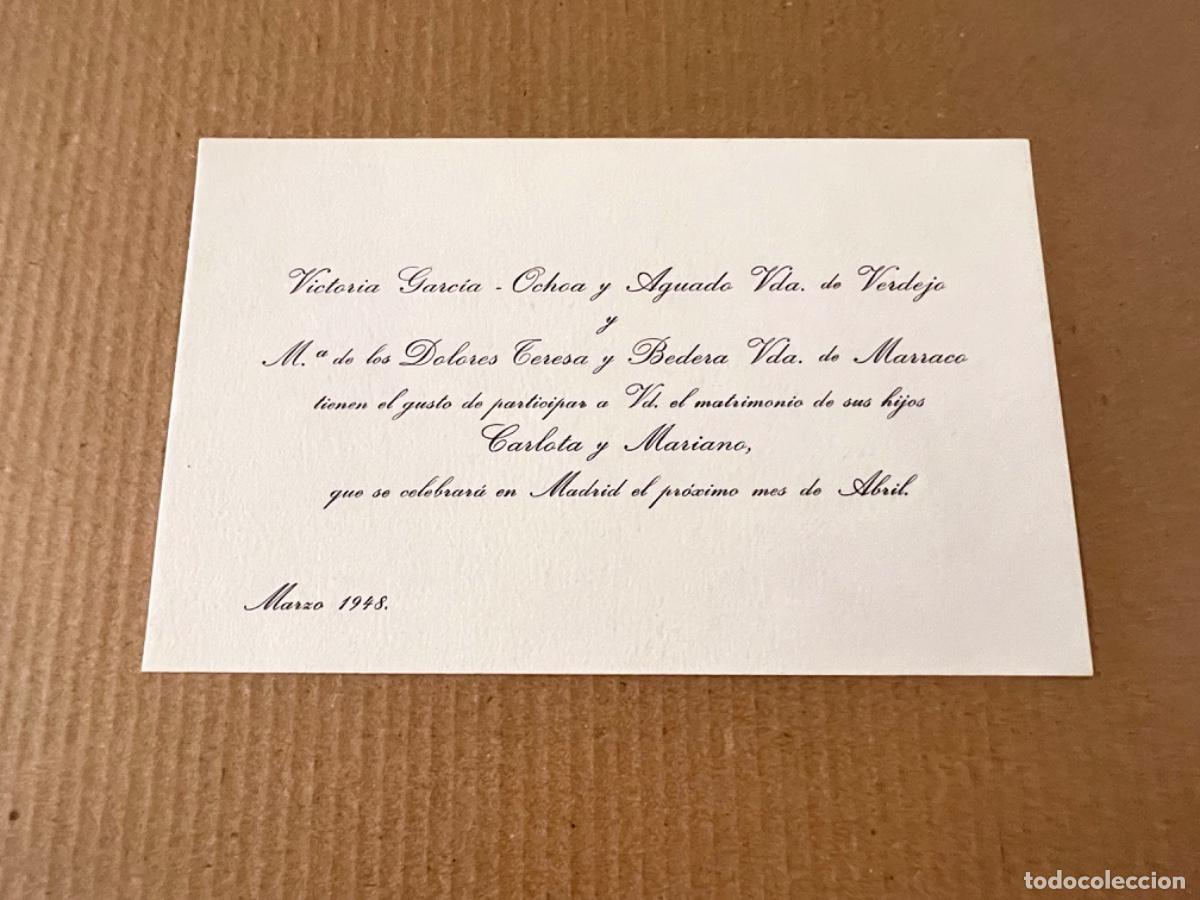 Victoria García - Ochoa y Aguado Vda. de Verdejo
y
M.ª de los Dolores Teresa y Bedera Vda. de Marraco
tienen el gusto de participar a Vd. el matrimonio de sus hijos
Carlota y Mariano,
que se celebrará en Madrid el próximo mes de Abril.
Marzo 1948.
todocoleccion